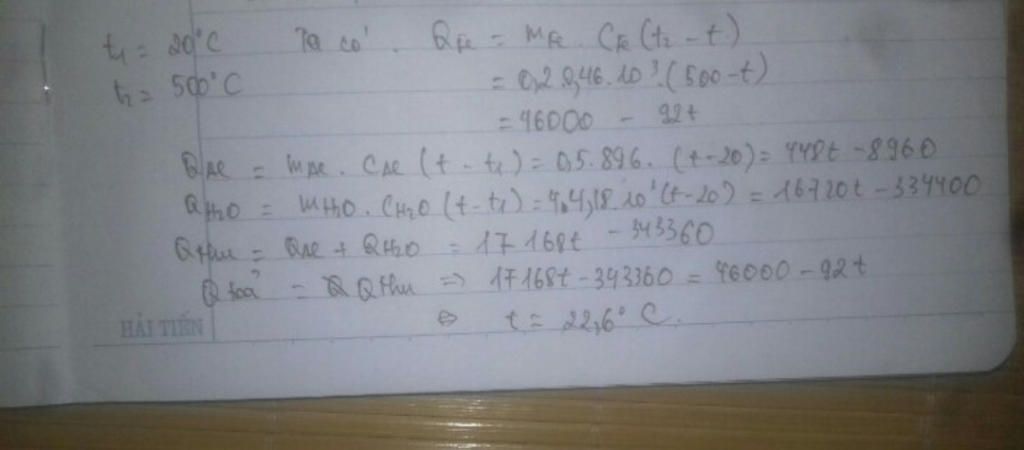 t₁ = 20°C Ta có: Q_Fe = m_Fe . C_Fe (t₂ - t)
t₂ = 500°C = 0,2.0,46.10³.(500-t)
= 46000 - 92t
Q_Al = m_Al . C_Al (t - t₁) = 0,5.896. (t-20) = 448t - 8960
Q_H₂O = m_H₂O . C_H₂O (t - t₁) = 4.4,18.10³(t-20) = 16720t - 334400
Q thu = Q_Al + Q_H₂O = 17168t - 343360
Q toả = Q thu => 17168t - 343360 = 46000 - 92t
⇔ t = 22,6° C.
HẢI TIẾN